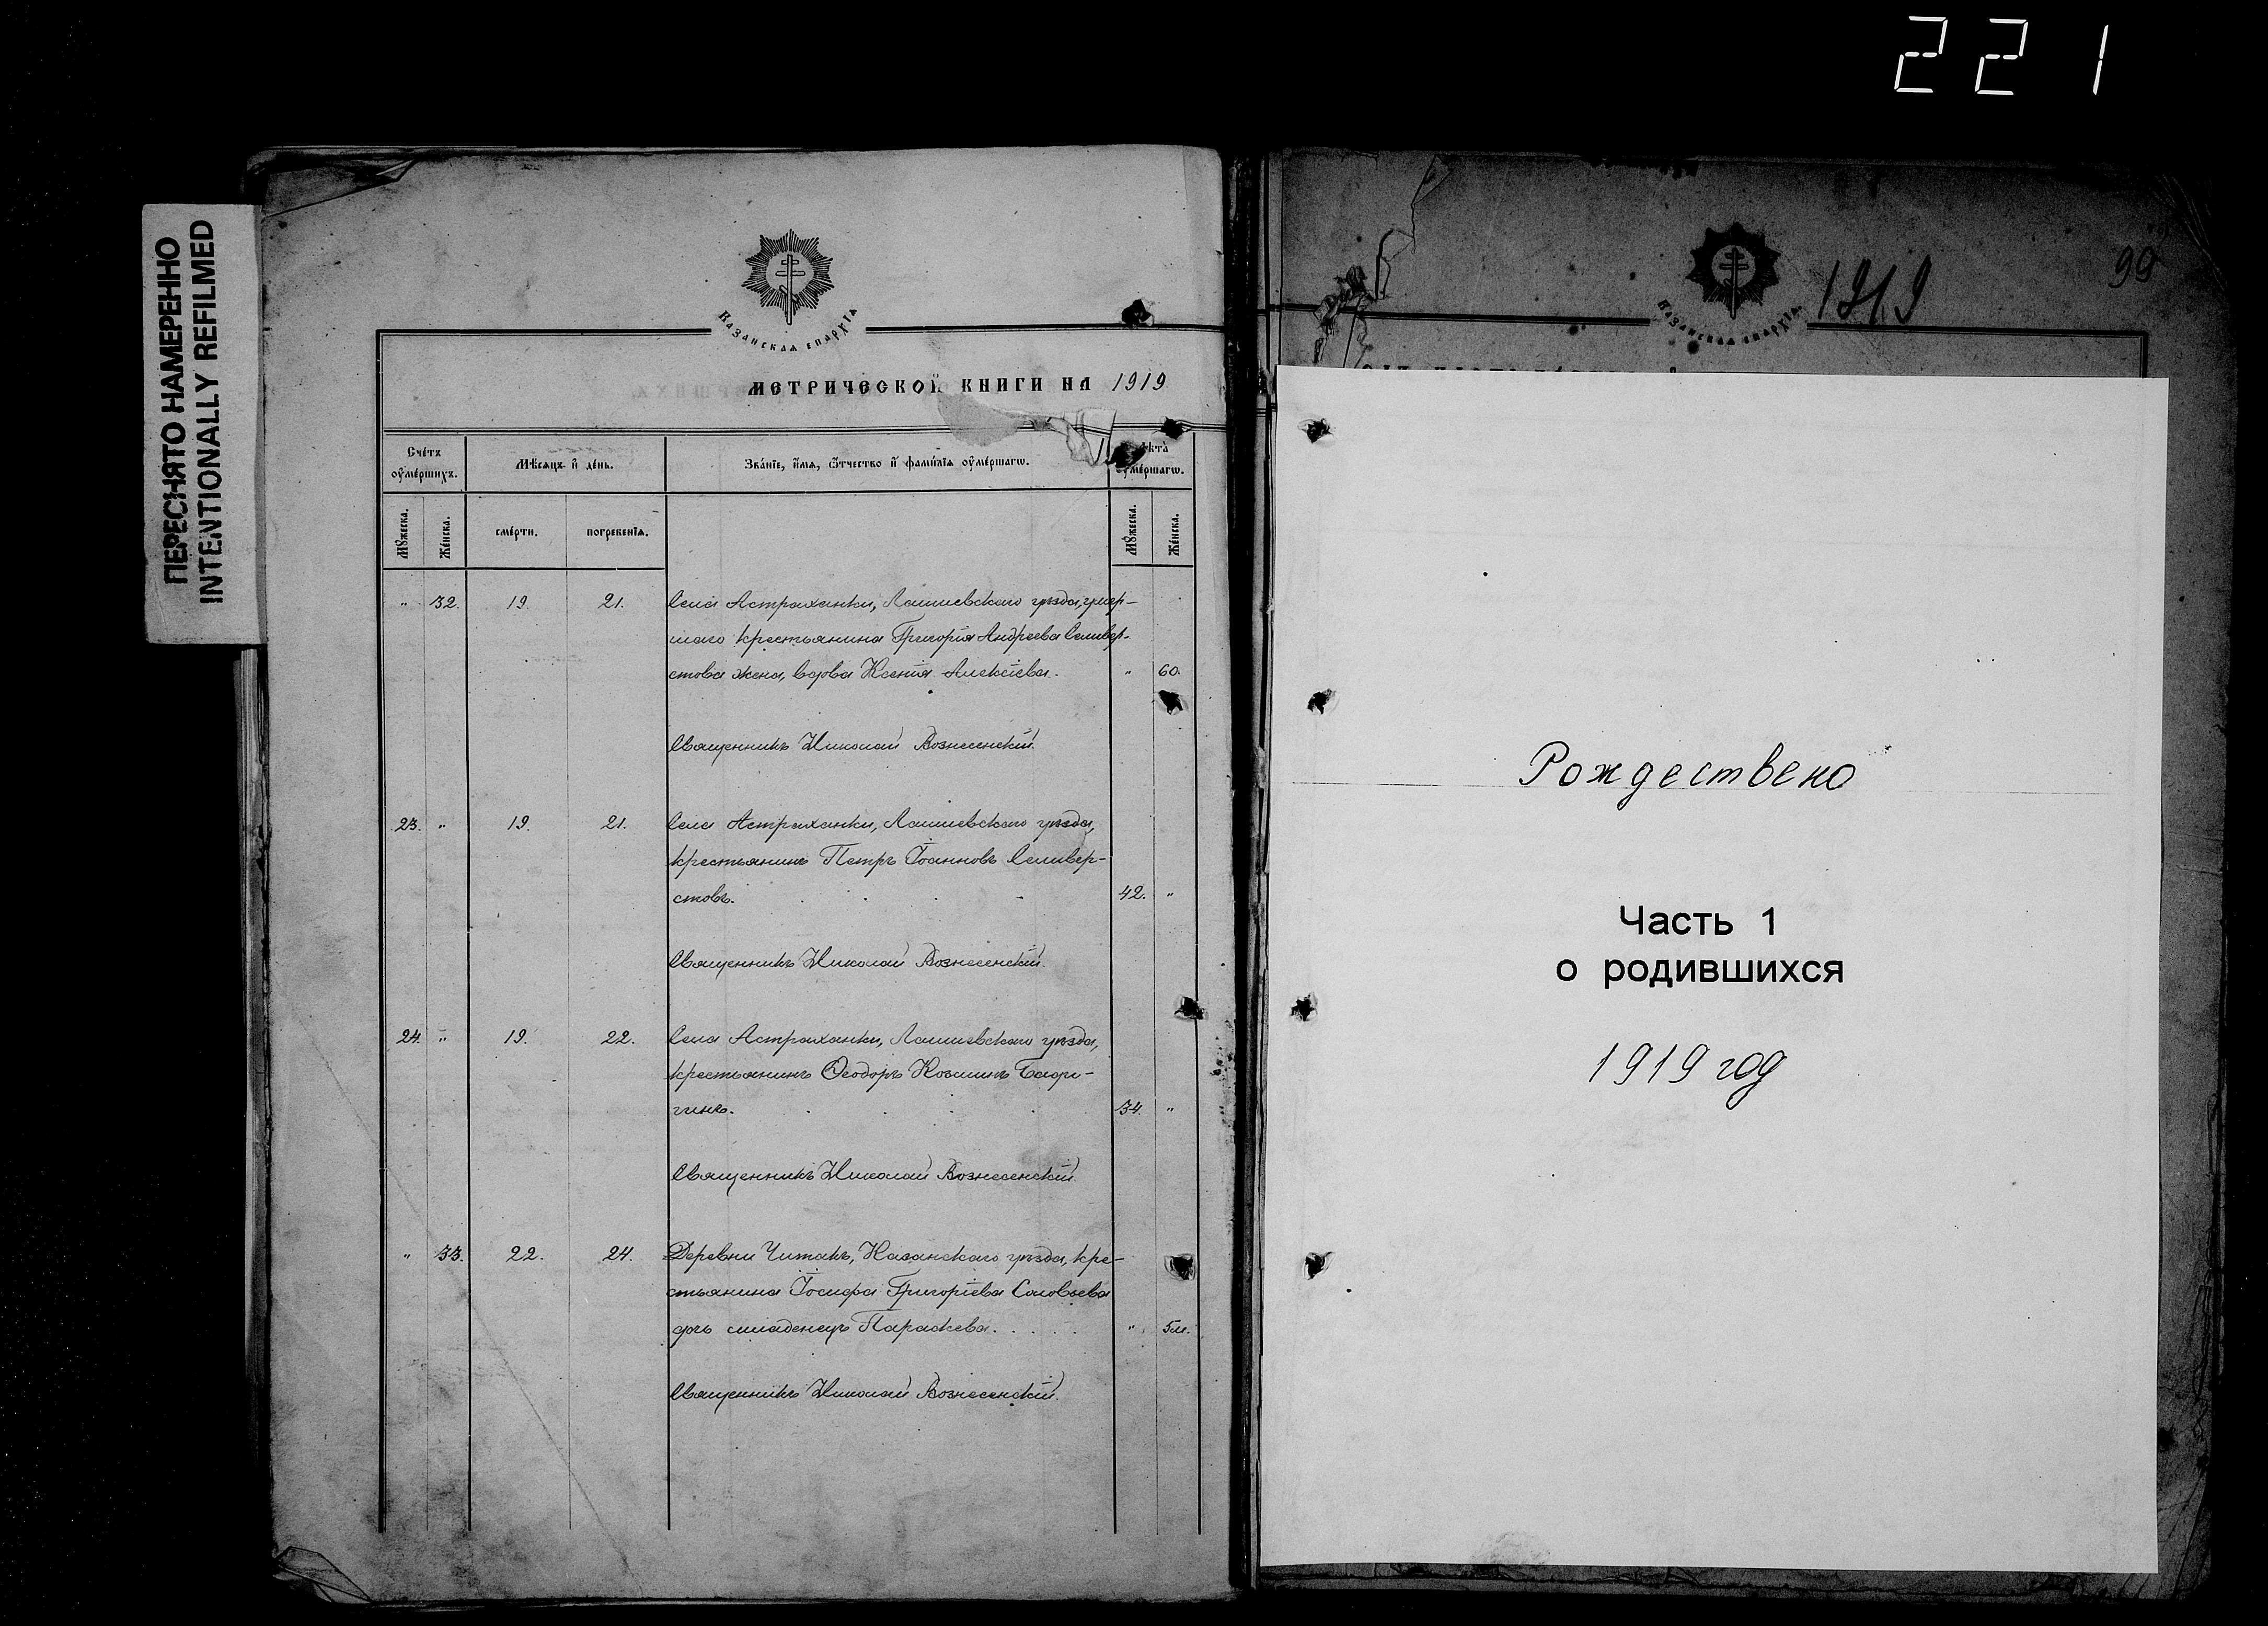 221
ПЕРЕСНЯТО НАМЕРЕННО
INTENTIONALLY REFILMED
КАЗАНСКАѦ ЕПАРХІѦ
МЕТРИЧЕСКОЙ КНИГИ НА 1919
Сче́тъ
ᲂу҆ме́ршихъ.
Мѣ́сѧцъ и҆ де́нь.
Зва́нїе, и҆́мѧ, ѻ҆́тчество и҆ фами́лїѧ ᲂу҆ме́ршагѡ.
Лѣ́та̀
ᲂу҆ме́ршагѡ.
Мꙋ́жеска.
Же́нска.
сме́рти.
погребе́нїѧ.
Мꙋ́жеска.
Же́нска.
" 32. 19. 21. Села Астраханки, Лаишевскаго уѣзда, умер-
шаго крестьянина Григорія Андреева Селивер-
стова жена, вдова Ксенія Алексіева. " 60.
Священникъ Николай Вознесенскій.
23. " 19. 21. Села Астраханки, Лаишевскаго уѣзда,
крестьянинъ Петръ Іоанновъ Селивер-
стовъ. 42. "
Священникъ Николай Вознесенскій.
24. " 19. 22. Села Астраханки, Лаишевскаго уѣзда,
крестьянинъ Ѳеодоръ Козминъ
34. "
Священникъ Николай Вознесенскій.
" 33. 22. 24. Деревни Читакъ, Казанскаго уѣзда, кре-
стьянина Іосифа Григоріева Соловьева
дочь младенецъ Параскева. " 5м.
Священникъ Николай Вознесенскій.
КАЗАНСКАѦ ЕПАРХІѦ
1919
99
Рождествено
Часть 1
о родившихся
1919 год